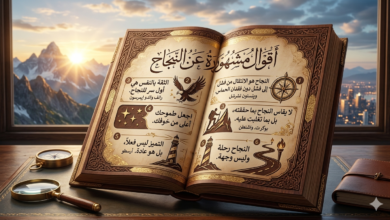 أقوال مشهورة عن النجاح
النجاح هو الانتقال من فشل
إلى فشل دون فقدان الحماس
وينستون تشرشل
لا يقاس النجاح بما حققته،
بل بما تغلبت عليه.
بوكر ت. واشنطن
النجاح رحلة
وليس وجهة.
الثقة بالنفس هي
أول سر للنجاح.
رالف والدو إيمرسون
اجعل طموحك
أعلى من خوفك.
التميز ليس فعلاً،
بل هو عادة.